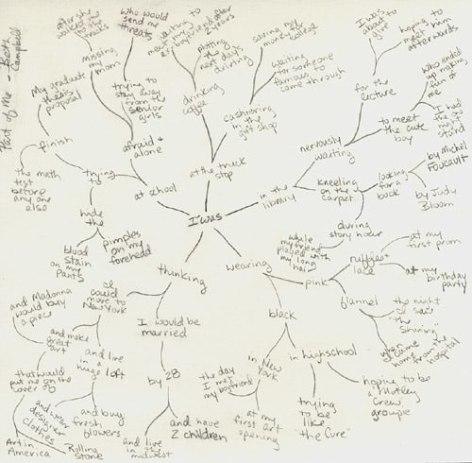 Part of Me - Beth
Campbell
I was
at school
afraid +
alone
missing
my
mom
after she
who would
send me
threats
trying to
stay away
from the
senior
girls
trying
to
finish
My graduate
thesis
proposal
the math
test
before
any one
else
hide
the
blood
stain
on my
pants
pimples
on my
forehead
at the truck
stop
drinking
coffee
waiting to
plotting
the next
days
driving
cashiering
in the
gift shop
saving my
money
college
waiting
for someone
famous
come through
in the
library
nervously
waiting
for the
lecture
I was
about to
give
hoping to
meet him
afterwards
to meet
the cute
boy
who ended
up making
fun of
me
I had
the
most
stupid
kneeling
on the
carpet
looking
for a
book
by Michel
Foucault
by Judy
Bloom
during
story hour
while
my friend
played with
my long
hair
wearing
pink
ruffles +
lace
at my
first prom
at my
birthday
party
flannel
the night
I saw
"the
shining"
when
I came
home from the
hospital
black
in
New
York
the day
I met
my boyfriend
at my
first art
opening
in highschool
trying
to be
like
"the Cure"
hoping to be
a Motley
Crew
groupie
thinking
I would be
married
by 28
and have
2 children
and live
in the
midwest
I
could
move to
New York
and make
great
art
and Madonna
would buy
a piece
that would
put me on the
cover of
Art in
America
Rolling
Stone
and live
in
huge loft
and wear
designer
clothes
and buy
fresh
flowers